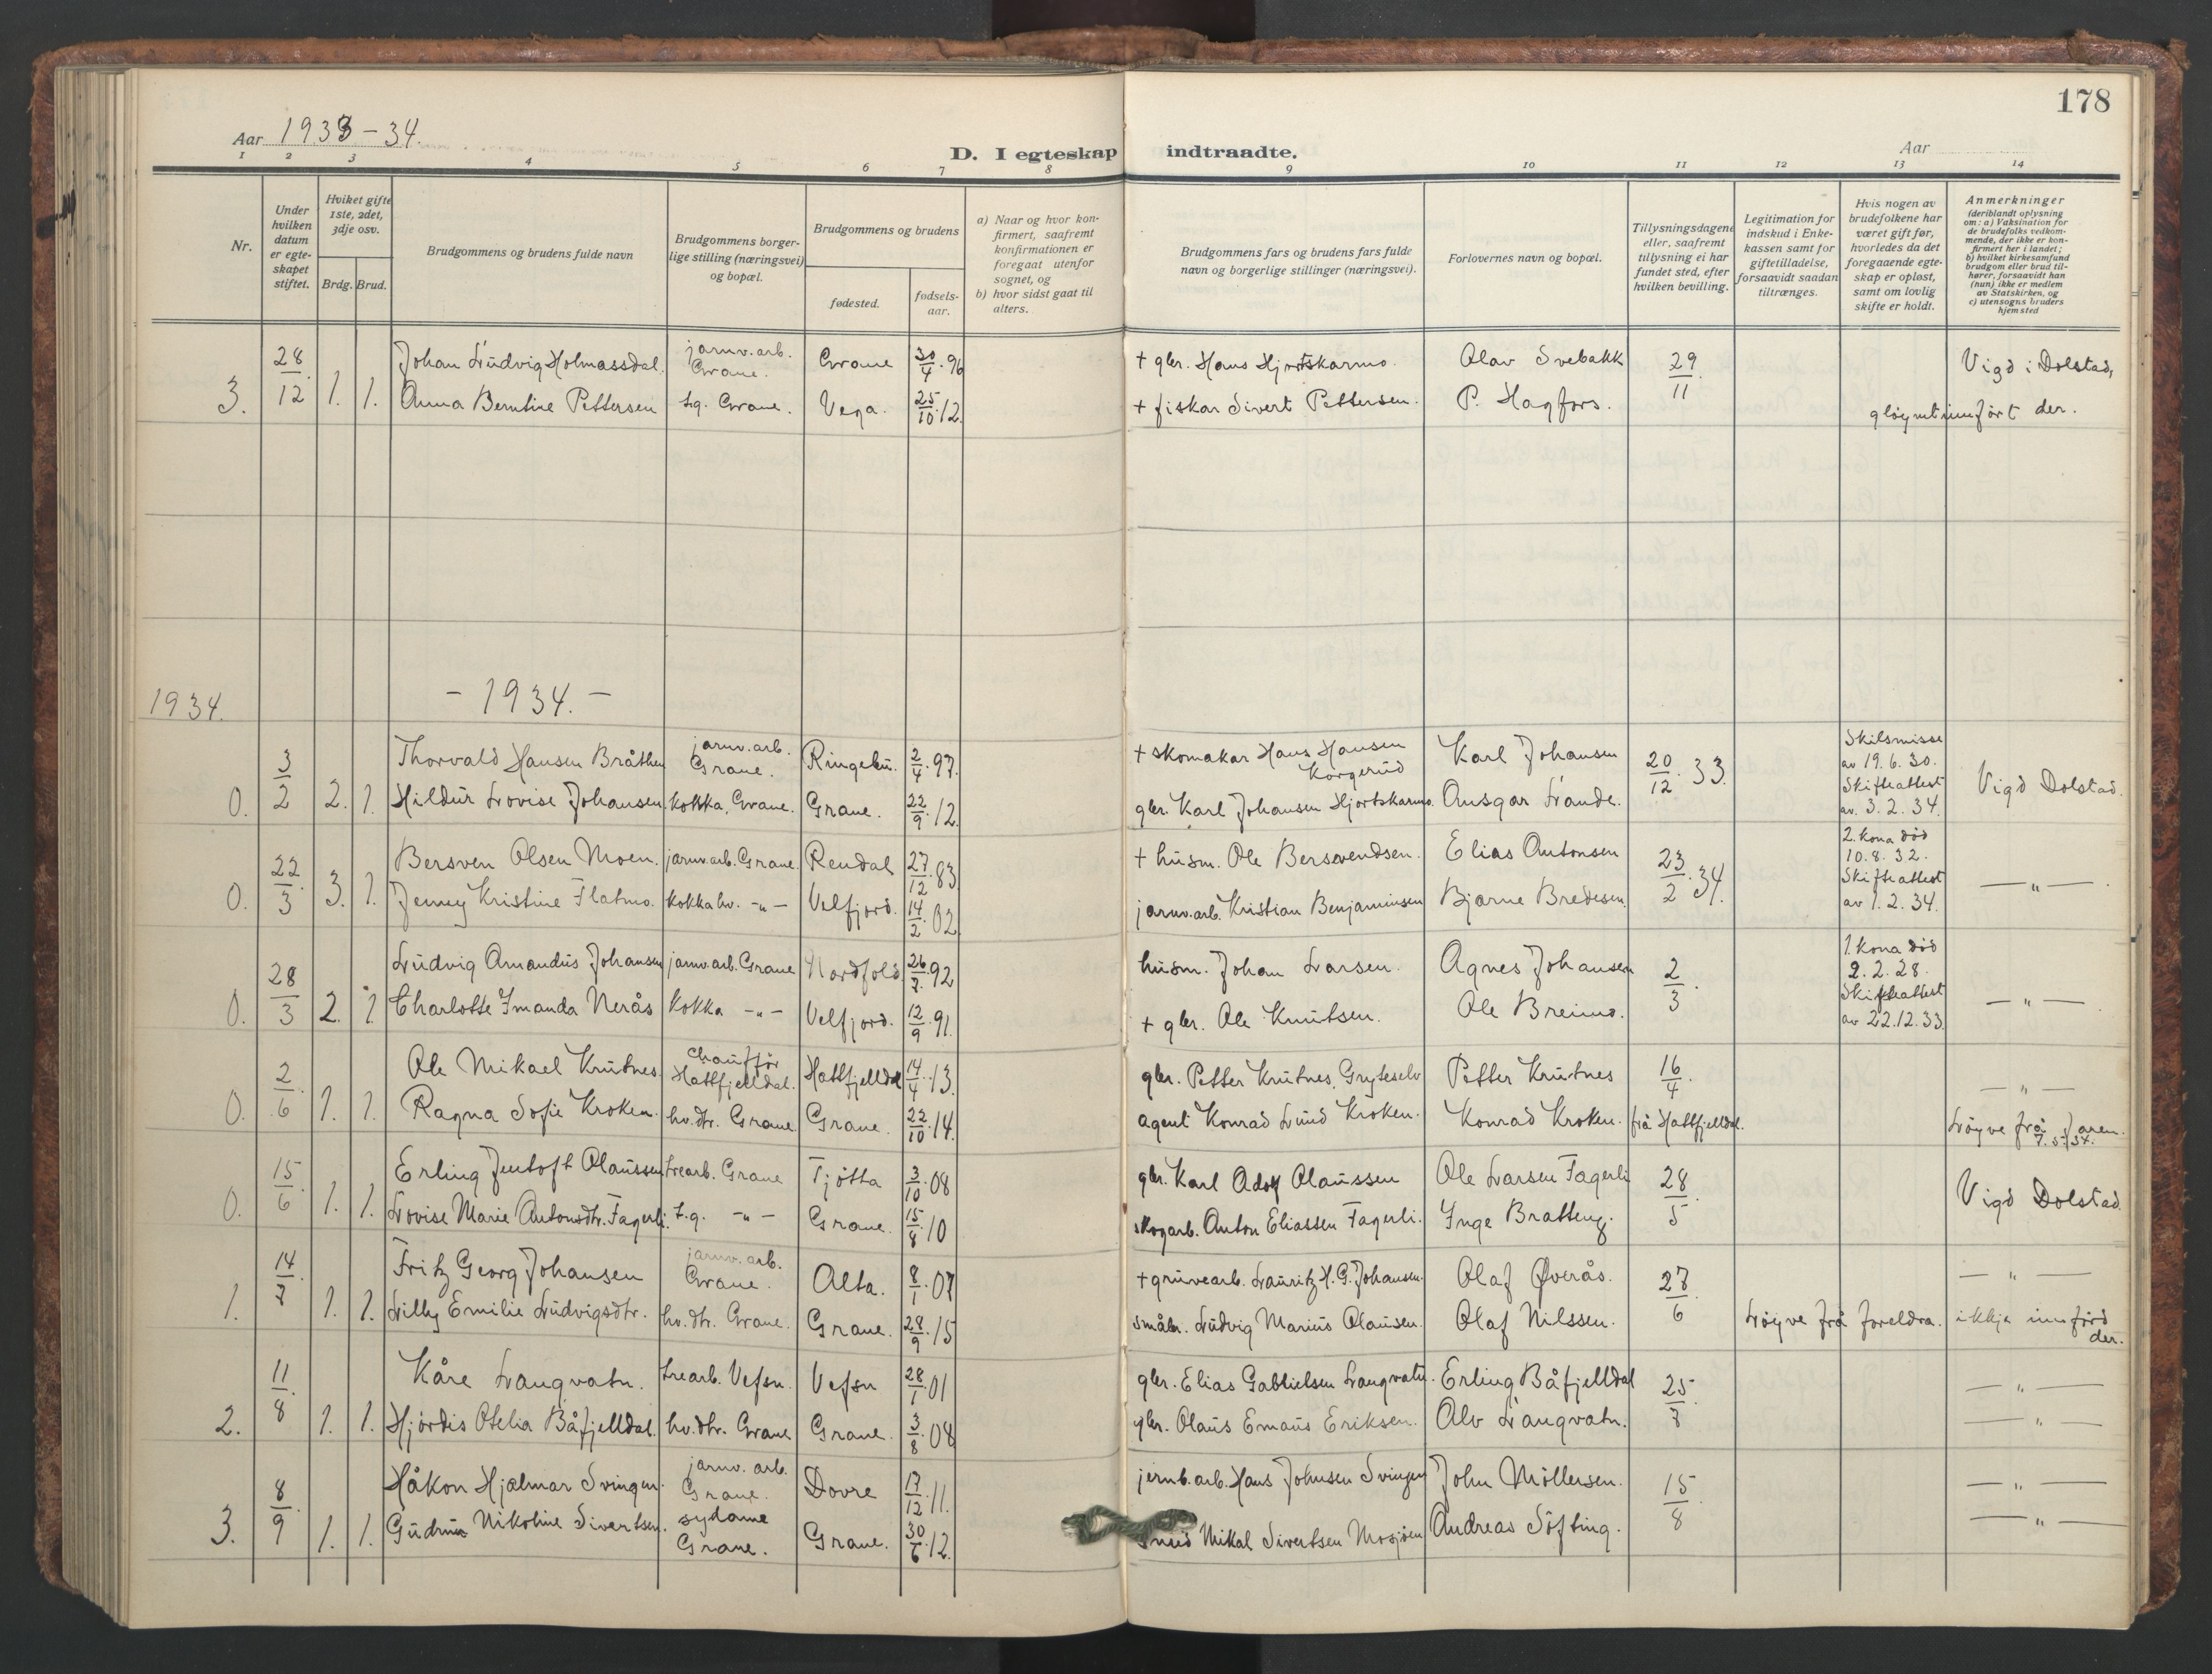 178
Aar 1933-34.
D. I egteskap indtraadte.
Aar
1 2 3 4 5 6 7 8 9 10 11 12 13 14
Nr.
Under hvilken datum er egteskapet stiftet.
Hviket gifte 1ste, 2det, 3dje osv.
Brdg. Brud.
Brudgommens og brudens fulde navn
Brudgommens borgerlige stilling (næringsvei) og bopæl.
Brudgommens og brudens
fødested.
fødselsaar.
a) Naar og hvor konfirmert, saafremt konfirmationen er foregaat utenfor sognet, og
b) hvor sidst gaat til alters.
Brudgommens fars og brudens fars fulde navn og borgerlige stillinger (næringsvei).
Forlovernes navn og bopæl.
Tillysningsdagene eller, saafremt tillysning ei har fundet sted, efter hvilken bevilling.
Legitimation for indskud i Enkekassen samt for giftetilladelse, forsaavidt saadan tiltrænges.
Hvis nogen av brudefolkene har været gift før, hvorledes da det foregaaende egteskap er opløst, samt om lovlig skifte er holdt.
Anmerkninger (deriblandt oplysning om: a) Vaksination for de brudefolks vedkommende, der ikke er konfirmert her i landet; b) hvilket kirkesamfund brudgom eller brud tilhører, forsaavidt han (hun) ikke er medlem av Statskirken, og c) utensogns bruders hjemsted
3. 28/12 1. 1. Johan Ludvig Holmassdal. jarnv.arb. Grane. Grane 30/4.96 + gbr. Hans Hjortskarmo. Olav Svebakk 29/11 Vigd i Dolstad,
Anna Berntine Pettersen tg. Grane. Vega. 25/10.12. + fiskar Sivert Pettersen. P. Hagfors. gløymt innført der.
1934. - 1934. -
0. 3/2 2. 1. Thorvald Hansen Bråthen jarnv.arb. Grane. Ringebu. 2/4.97. + skomakar Hans Hansen Korgerud Karl Johansen 20/12.33. Skilsmisse av 19.6.30. Skifteattest av. 3.2.34. Vigd Dolstad.
Hildur Lovise Johansen kokka, Grane. Grane. 22/9.12. gbr. Karl Johansen Hjortskarmo. Ansgar Lande.
0. 22/3 3. 1. Bersven Olsen Moen. jarnv.arb. Grane Rendal 27/12.83 + husm. Ole Bersvendsen. Elias Antonsen 23/2.34. 2. kona død 10.8.32. Skifteattest av 1.2.34. —„—.
Jenny Kristine Flatmo. kokka hv. -„- Velfjord. 14/2.02 jarnv.arb. Kristian Benjaminsen Bjarne Bredesen.
0. 28/3 2. 1. Ludvig Amandus Johansen jarnv.arb. Grane Nordfold 26/7.92 husm. Johan Larsen. Agnes Johansen 2/3. 1. kona død 2.2.28. Skifteattest av 22.12.33. —„—.
Charlotte Imanda Nerås kokka -„- Velfjord. 12/9.91. + gbr. Ole Knutsen. Ole Breimo.
0. 2/6 1. 1. Ole Mikael Krutnes chauffør Hattfjelldal. Hattfjelldal 14/4.13. gbr. Petter Krutnes, Gryteselv Petter Krutnes 16/4. —„—
Ragna Sofie Kroken. hv.dtr. Grane. Grane. 22/10.14. agent Konrad Lund Kroken. Konrad Kroken. frå Hattfjelldal. Løyve frå faren. 7.5.34.
0. 15/6. 1. 1. Erling Jentoft Olaussen trearb. Grane Tjøtta 3/10.08 gbr. Karl Adolf Olaussen Ole Larsen Fagerli 28/5 Vigd Dolstad.
Lovise Marie Antonsdtr. Fagerli. t.g. -„- Grane. 15/8.10 skogarb. Anton Eliassen Fagerli. Inge Bratteng.
1. 14/7. 1. 1. Fritz Georg Johansen jarnv.arb. Grane. Alta. 8/1.07 + gruvearb. Lauritz H.G. Johansen. Olaf Øverås. 27/6 —„—
Lilly Emilie Ludvigsdtr. hv.dtr. Grane. Grane. 28/9.15 småbr. Ludvig Marius Olausen. Olaf Nilssen. Løyve frå foreldra. ikkje innførd der.
2. 11/8 1. 1. Kåre Langvatn. trearb. Vefsn. Vefsn 28/1.01 gbr. Elias Gabrielsen Langvatn. Erling Båfjelldal 25/7. —„—
Hjørdis Otelia Båfjelldal. hv.dtr. Grane Grane. 3/8.08 gbr. Olaus Emaus Eriksen. Alv Langvatn. —„—
3. 8/9. 1. 1. Håkon Hjalmar Svingen. jarnv. arb. Grane. Dovre 17/12.11. jernb.arb. Hans Johnsen Svingen John Møllersen. 15/8 —„—
Gudrun Nikoline Sivertsen. sydame Grane. Grane. 30/6.12. Mikal Sivertsen Mosjøen Andreas Søfting. —„—